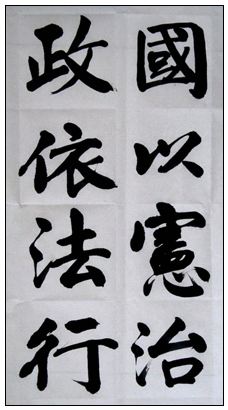 國以憲治
政依法行